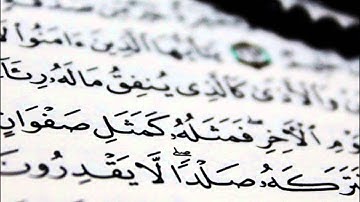 يَـٰٓأَيُّهَا ٱلَّذِينَ ءَامَنُوا۟
وَٱلْأَذَىٰ كَٱلَّذِى يُنفِقُ مَالَهُۥ رِئَآءَ
ٱلْـَٔاخِرِ ۖ فَمَثَلُهُۥ كَمَثَلِ صَفْوَانٍ
فَتَرَكَهُۥ صَلْدًا ۖ لَّا يَقْدِرُونَ